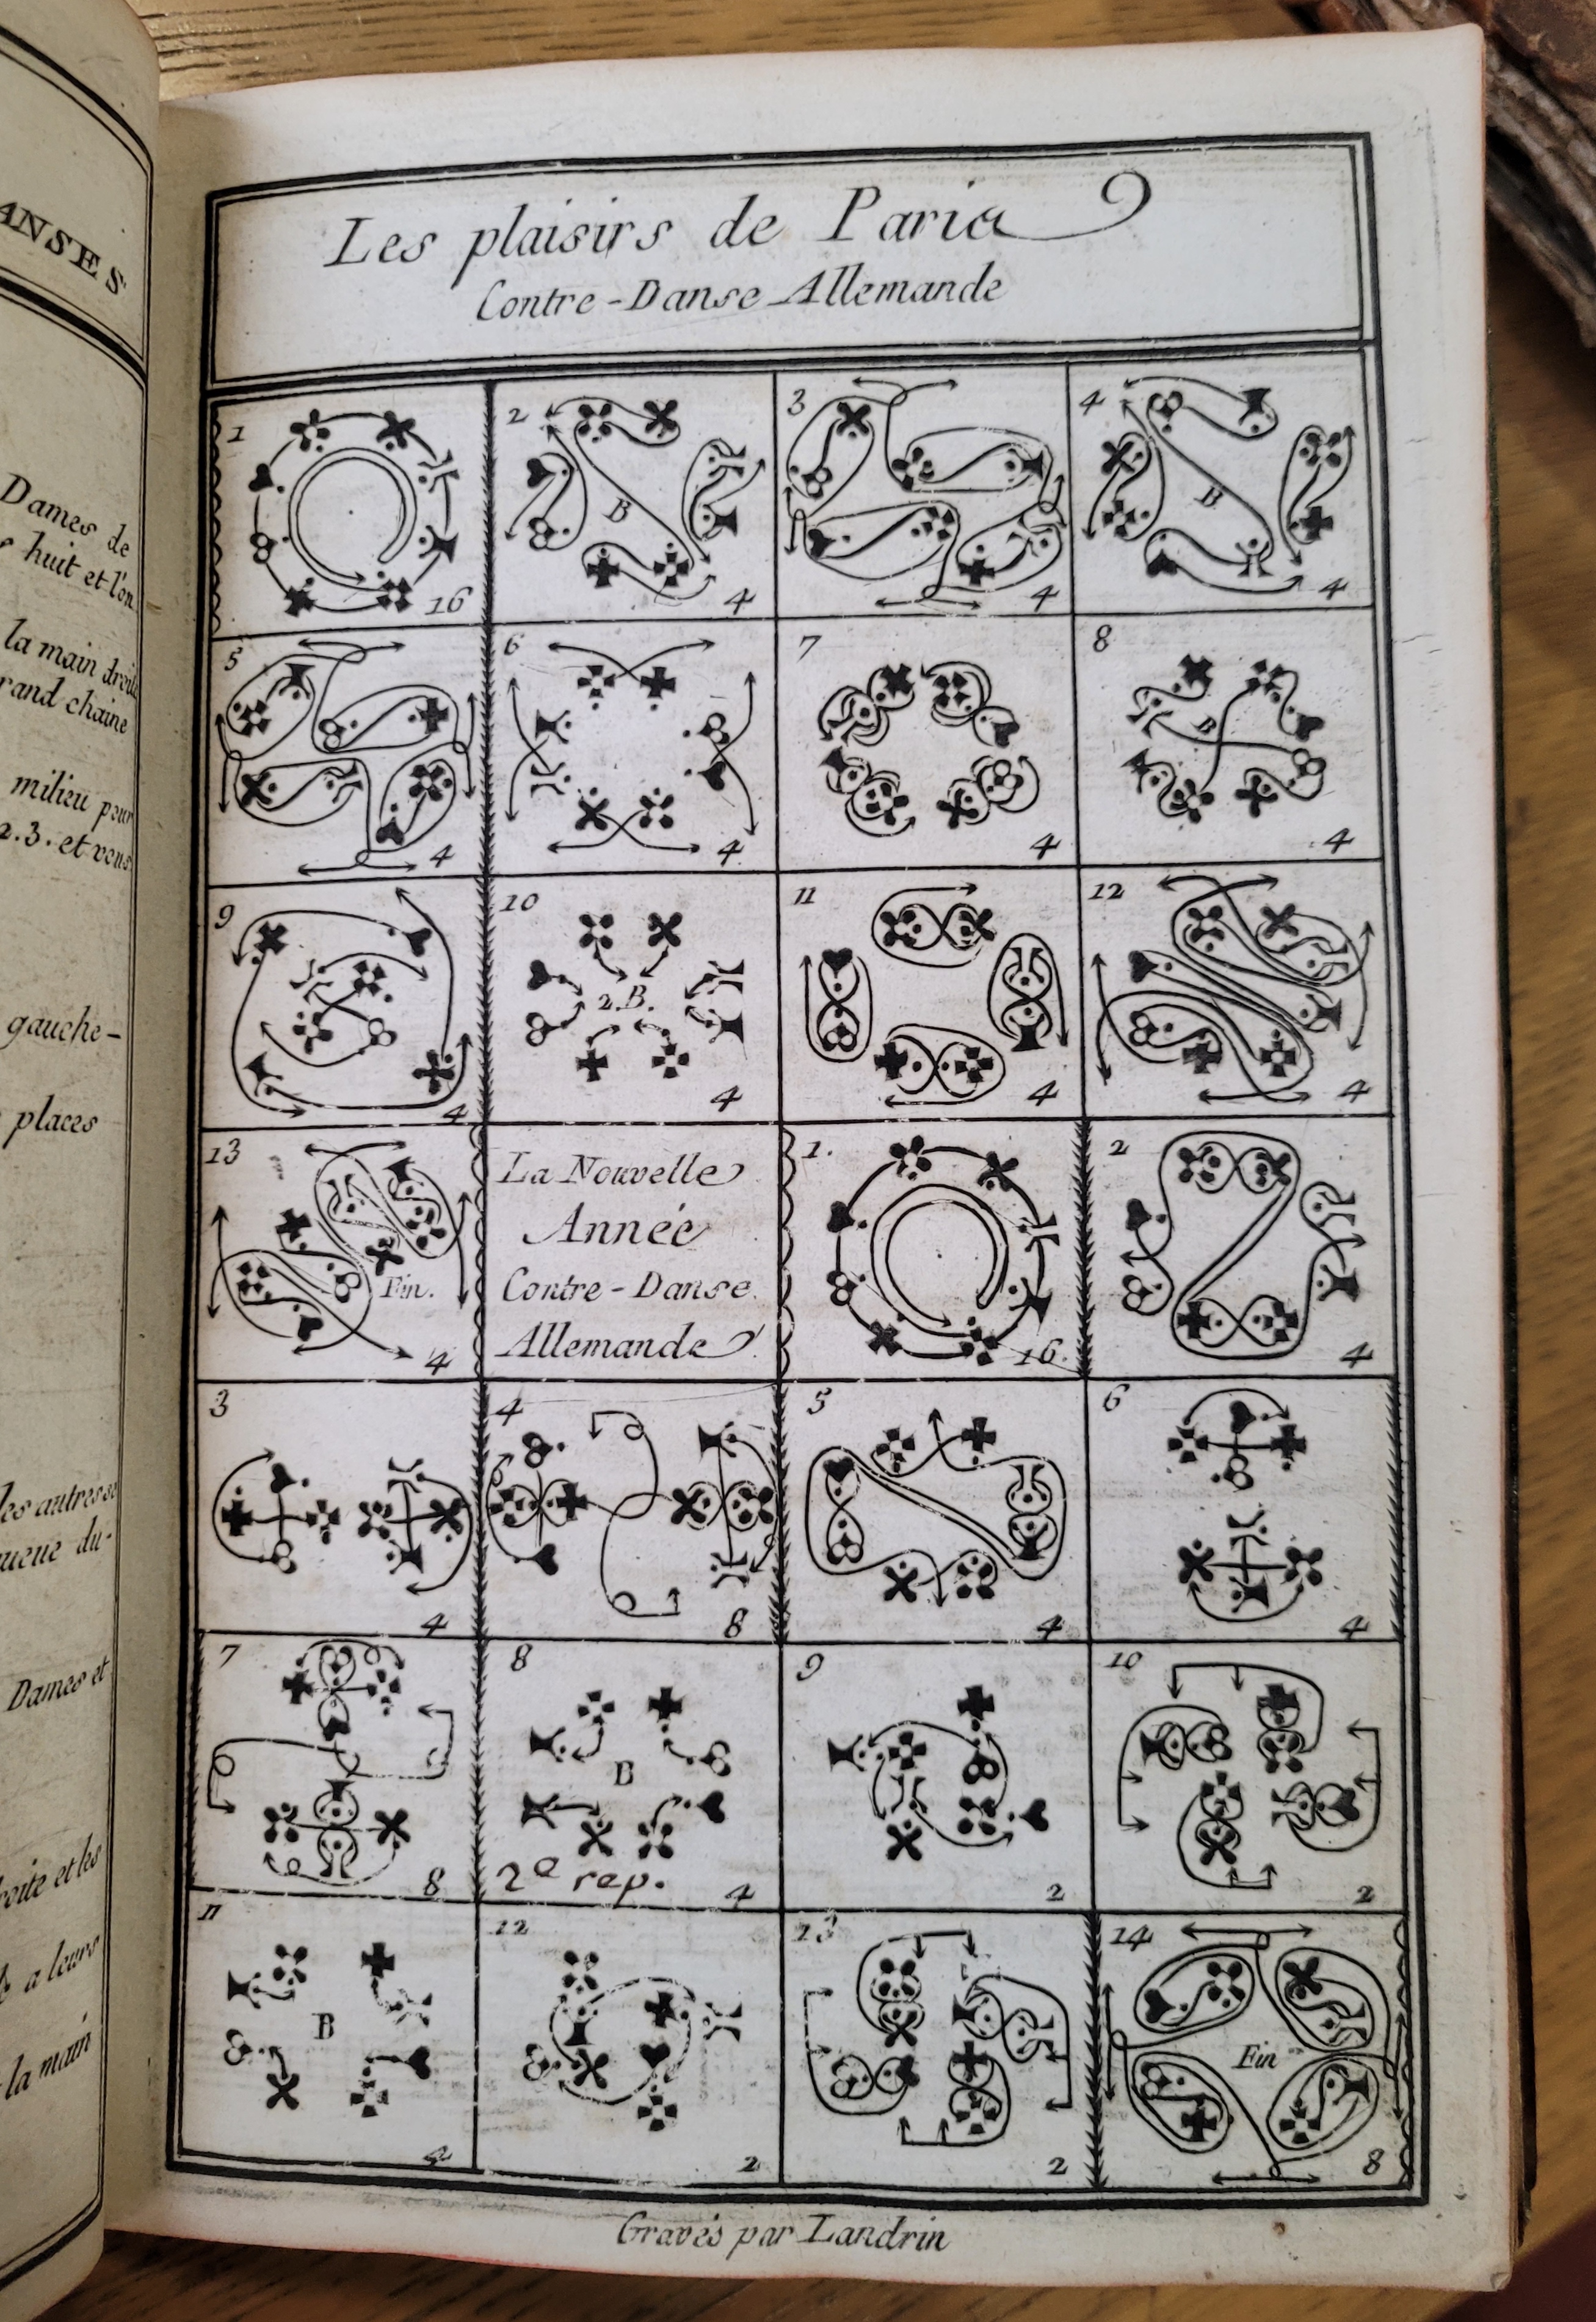 ANSES
Dames de
huit et l'on
la main droite
rand chaine
milieu pour
2.3. et vous
gauche-
places
les autres se
queue du-
Dames et
droite et les
a leurs
la main
Les plaisirs de Paris
Contre-Danse Allemande
1
16
2
B
4
3
4
4
B
4
5
4
6
4
7
4
8
B
4
9
4
10
2.B.
4
11
4
12
4
13
Fin.
4
La Nouvelle
Année
Contre-Danse
Allemande
1.
16.
2
4
3
4
4
8
5
4
6
4
7
8
8
B
2e rep.
4
9
2
10
2
11
B
2
12
2
13
2
14
Fin
8
Gravés par Landrin